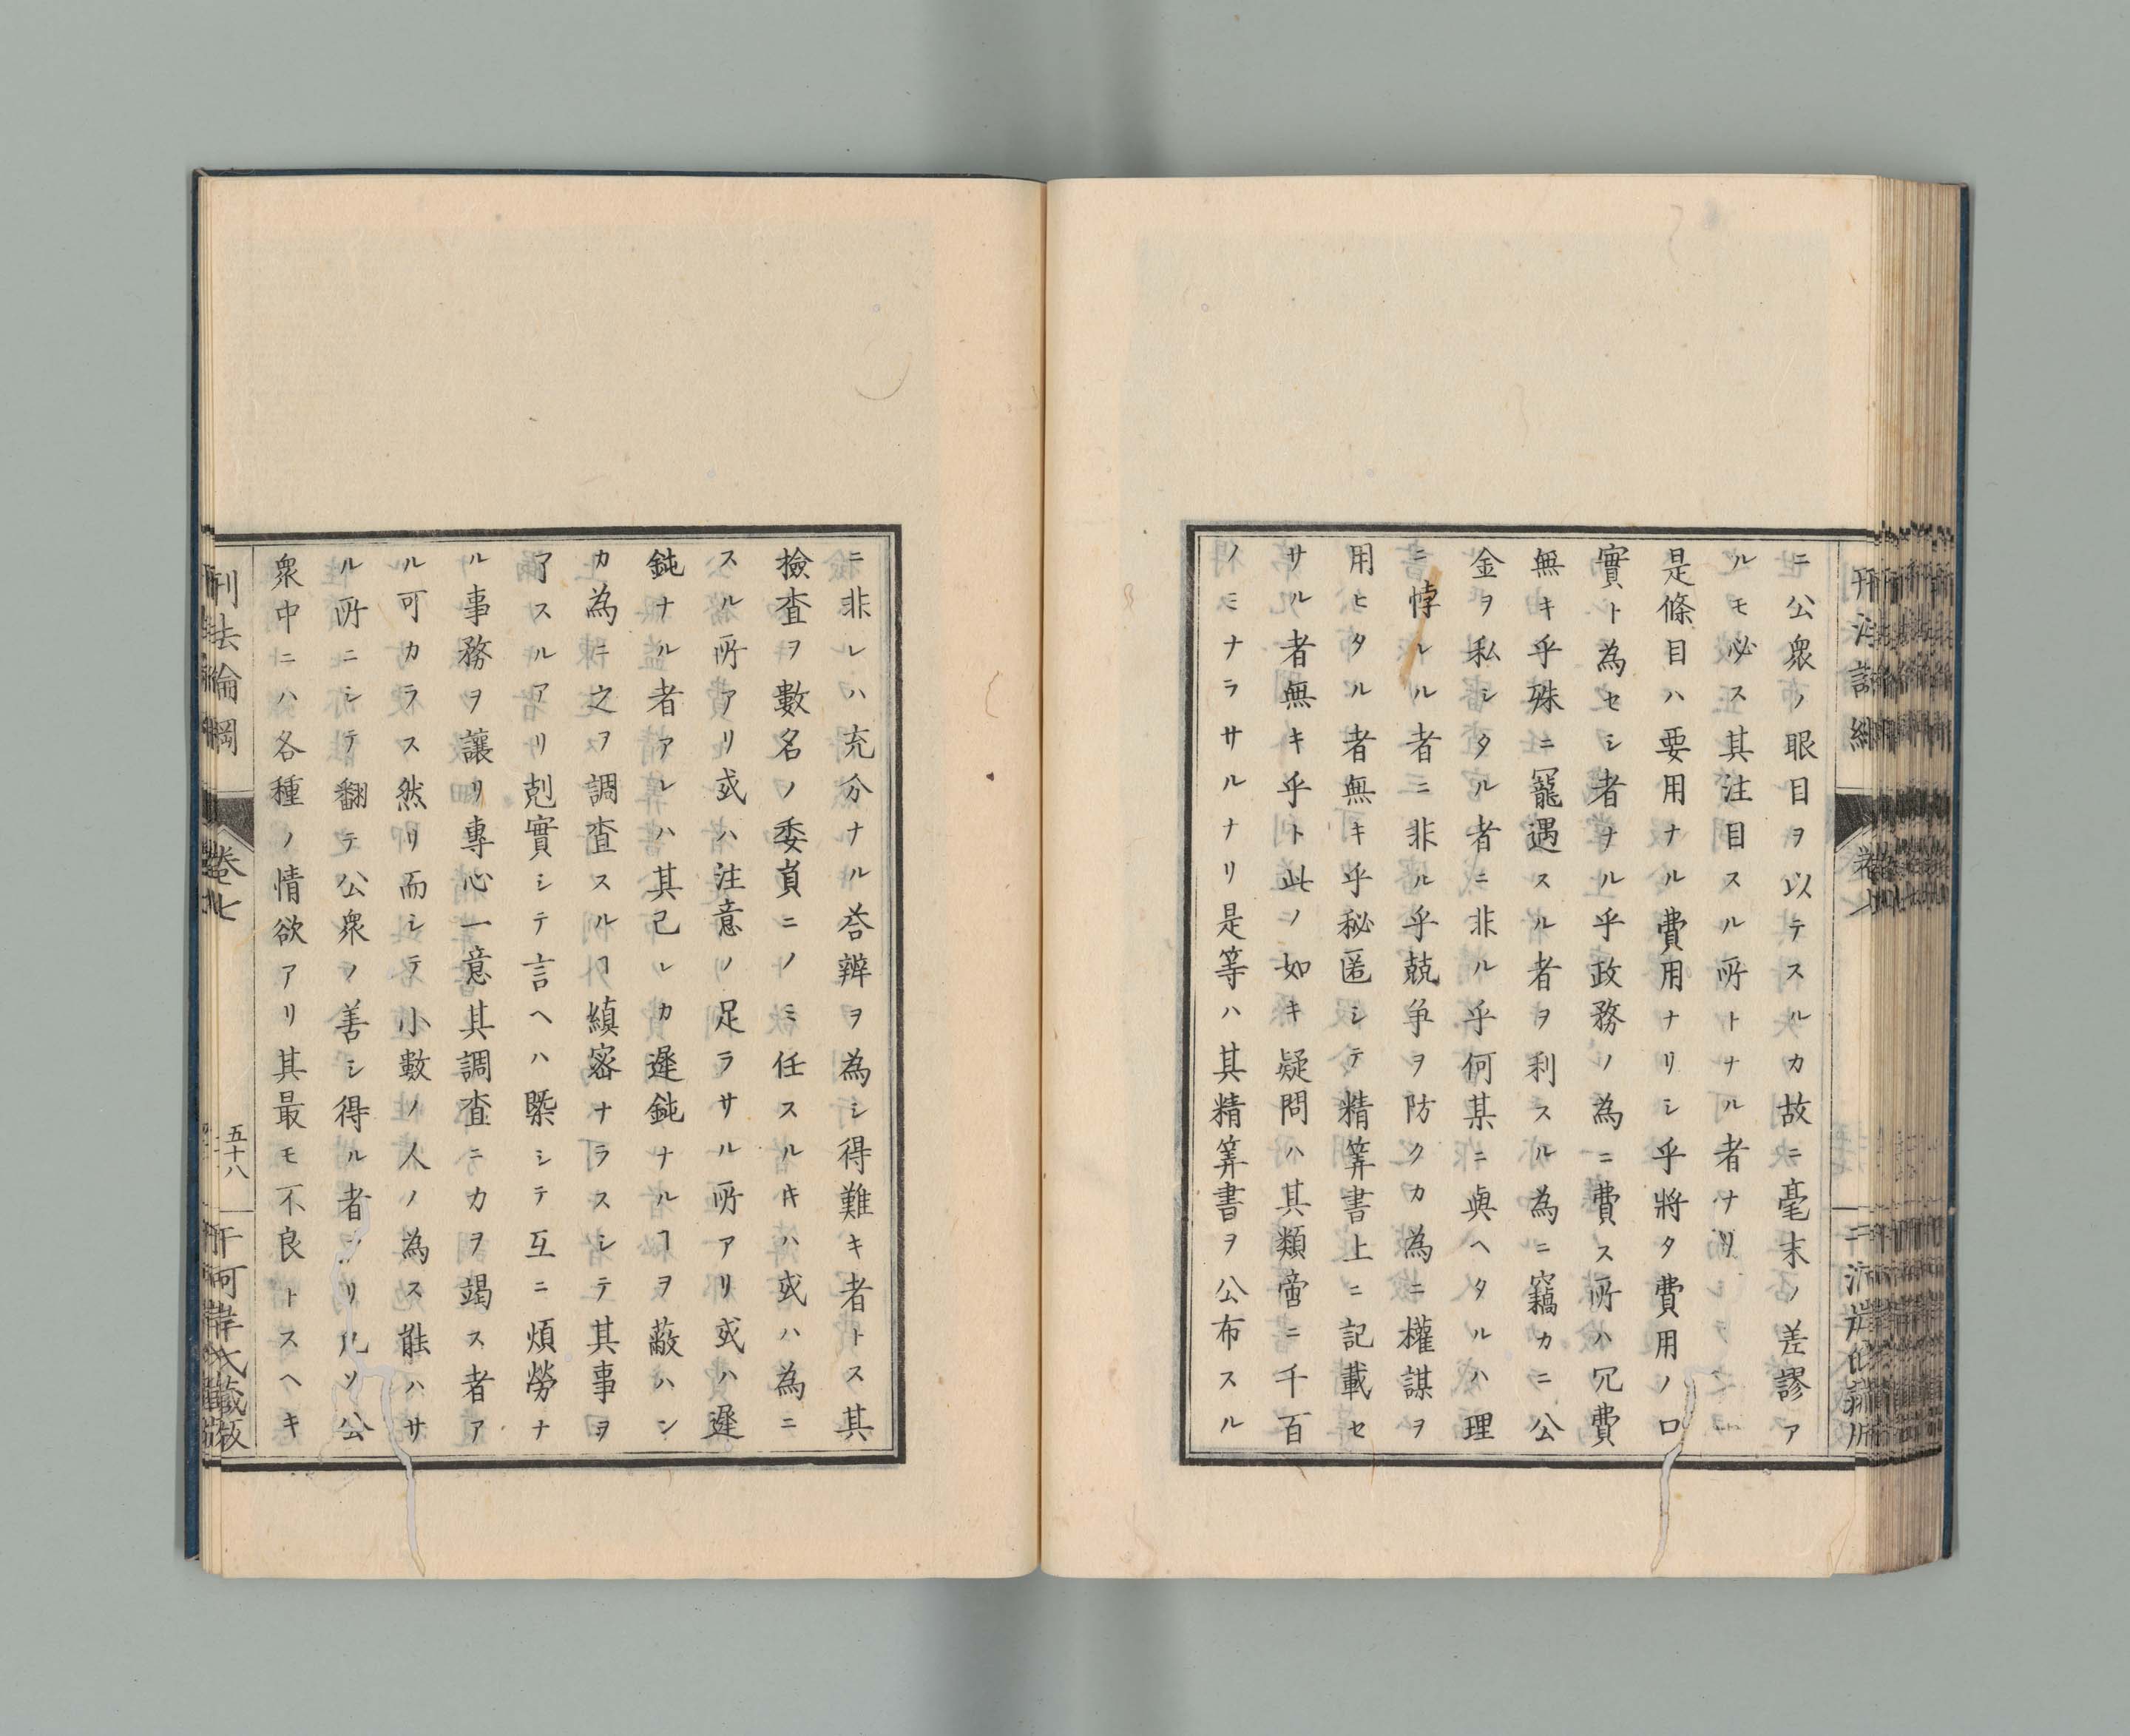 ニ公衆ノ眼目ヲ以テスルカ故ニ毫末ノ差謬ア
ルモ必ス其注目スル所トナル者ナリ
是條目ハ要用ナル費用ナリシ乎將タ費用ノ口
實ト為セシ者ナル乎政務ノ為ニ費ス所ハ冗費
無キ乎殊ニ寵遇スル者ヲ利スル為ニ竊カニ公
金ヲ私シタル者ニ非ル乎何某ニ與ヘタルハ理
ニ悖ルル者ニ非ル乎兢争ヲ防クカ為ニ權謀ヲ
用ヒタル者無キ乎秘匿シテ精筭書上ニ記載セ
サル者無キ乎ト此ノ如キ疑問ハ其類啻ニ千百
ノミナラサルナリ是等ハ其精筭書ヲ公布スル
ニ非レハ充分ナル荅辨ヲ為シ得難キ者トス其
撿查ヲ數名ノ委員ニノミ任スルキハ或ハ為ニ
スル所アリ或ハ注意ノ足ラサル所アリ或ハ遲
鈍ナル者アレハ其己レカ遲鈍ナルヿヲ蔽ハン
カ為ニ之ヲ調查スルヿ縝密ナラスシテ其事ヲ
了スルアリ剋實シテ言ヘハ槩シテ互ニ煩勞ナ
ル事務ヲ讓リ專心一意其調查ニカヲ竭ス者ア
ル可カラス然リ而シテ小數ノ人ノ為ス能ハサ
ル所ニシテ翻テ公衆ノ善シ得ル者アリ凡ソ公
衆中ニハ各種ノ情欲アリ其最モ不良トスヘキ
刑法論綱
卷七
五十八
何禮之藏版